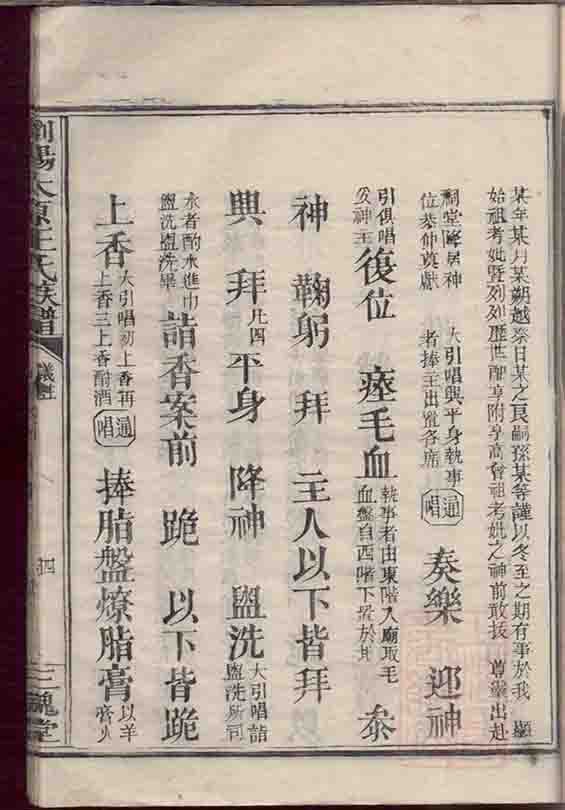 某年某月某朔越祭日某之良嗣孫某等謹以冬至之期有事於我 顯
始祖考妣暨列列歷世配享附享高曾祖考妣之神前敢扳 尊靈出赴
祠堂降居神
位恭伸奠獻 大引唱興平身執事
者捧主出置各席 通唱 奏樂 迎神
引俱唱
及神主 復位 瘞毛血 執事者由東階入廟取毛
血盤自西階下置於 泰
神 鞠躬 拜 主人以下皆拜
興 拜 凡四 平身 降神 盥洗 大引唱詣
盥洗所司
水者酌水進巾
盥洗盥洗畢 詣香案前 跪 以下皆跪
上香 大引唱初上香再
上香三上香酹酒 通唱 捧脂盤燎脂膏 以羊
膏火
瀏陽太原王氏族譜
四
三槐堂